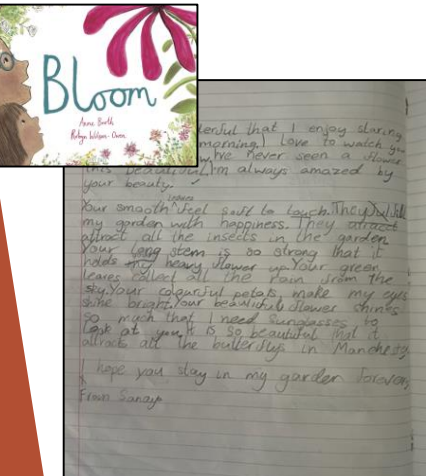 Bloom
Anne Booth
Robyn Wilson-Owen
that I enjoy staring
morning. I love to watch you
I've never seen a flower
this beautiful. I'm always amazed by
your beauty.
leaves
Your smooth ^ feel soft to touch. They
my garden with happiness. They attract
attract all the insects in the garden
Your long stem is so strong that it
holds my heavy flower up. Your green
leaves collect all the rain from the
sky. Your colourful petals make my eyes
shine bright. Your beautiful flower shines
so much that I need sunglasses to
look at you. It is so beautiful that it
attracts all the butterflys in Manchester
I hope you stay in my garden forever,
From